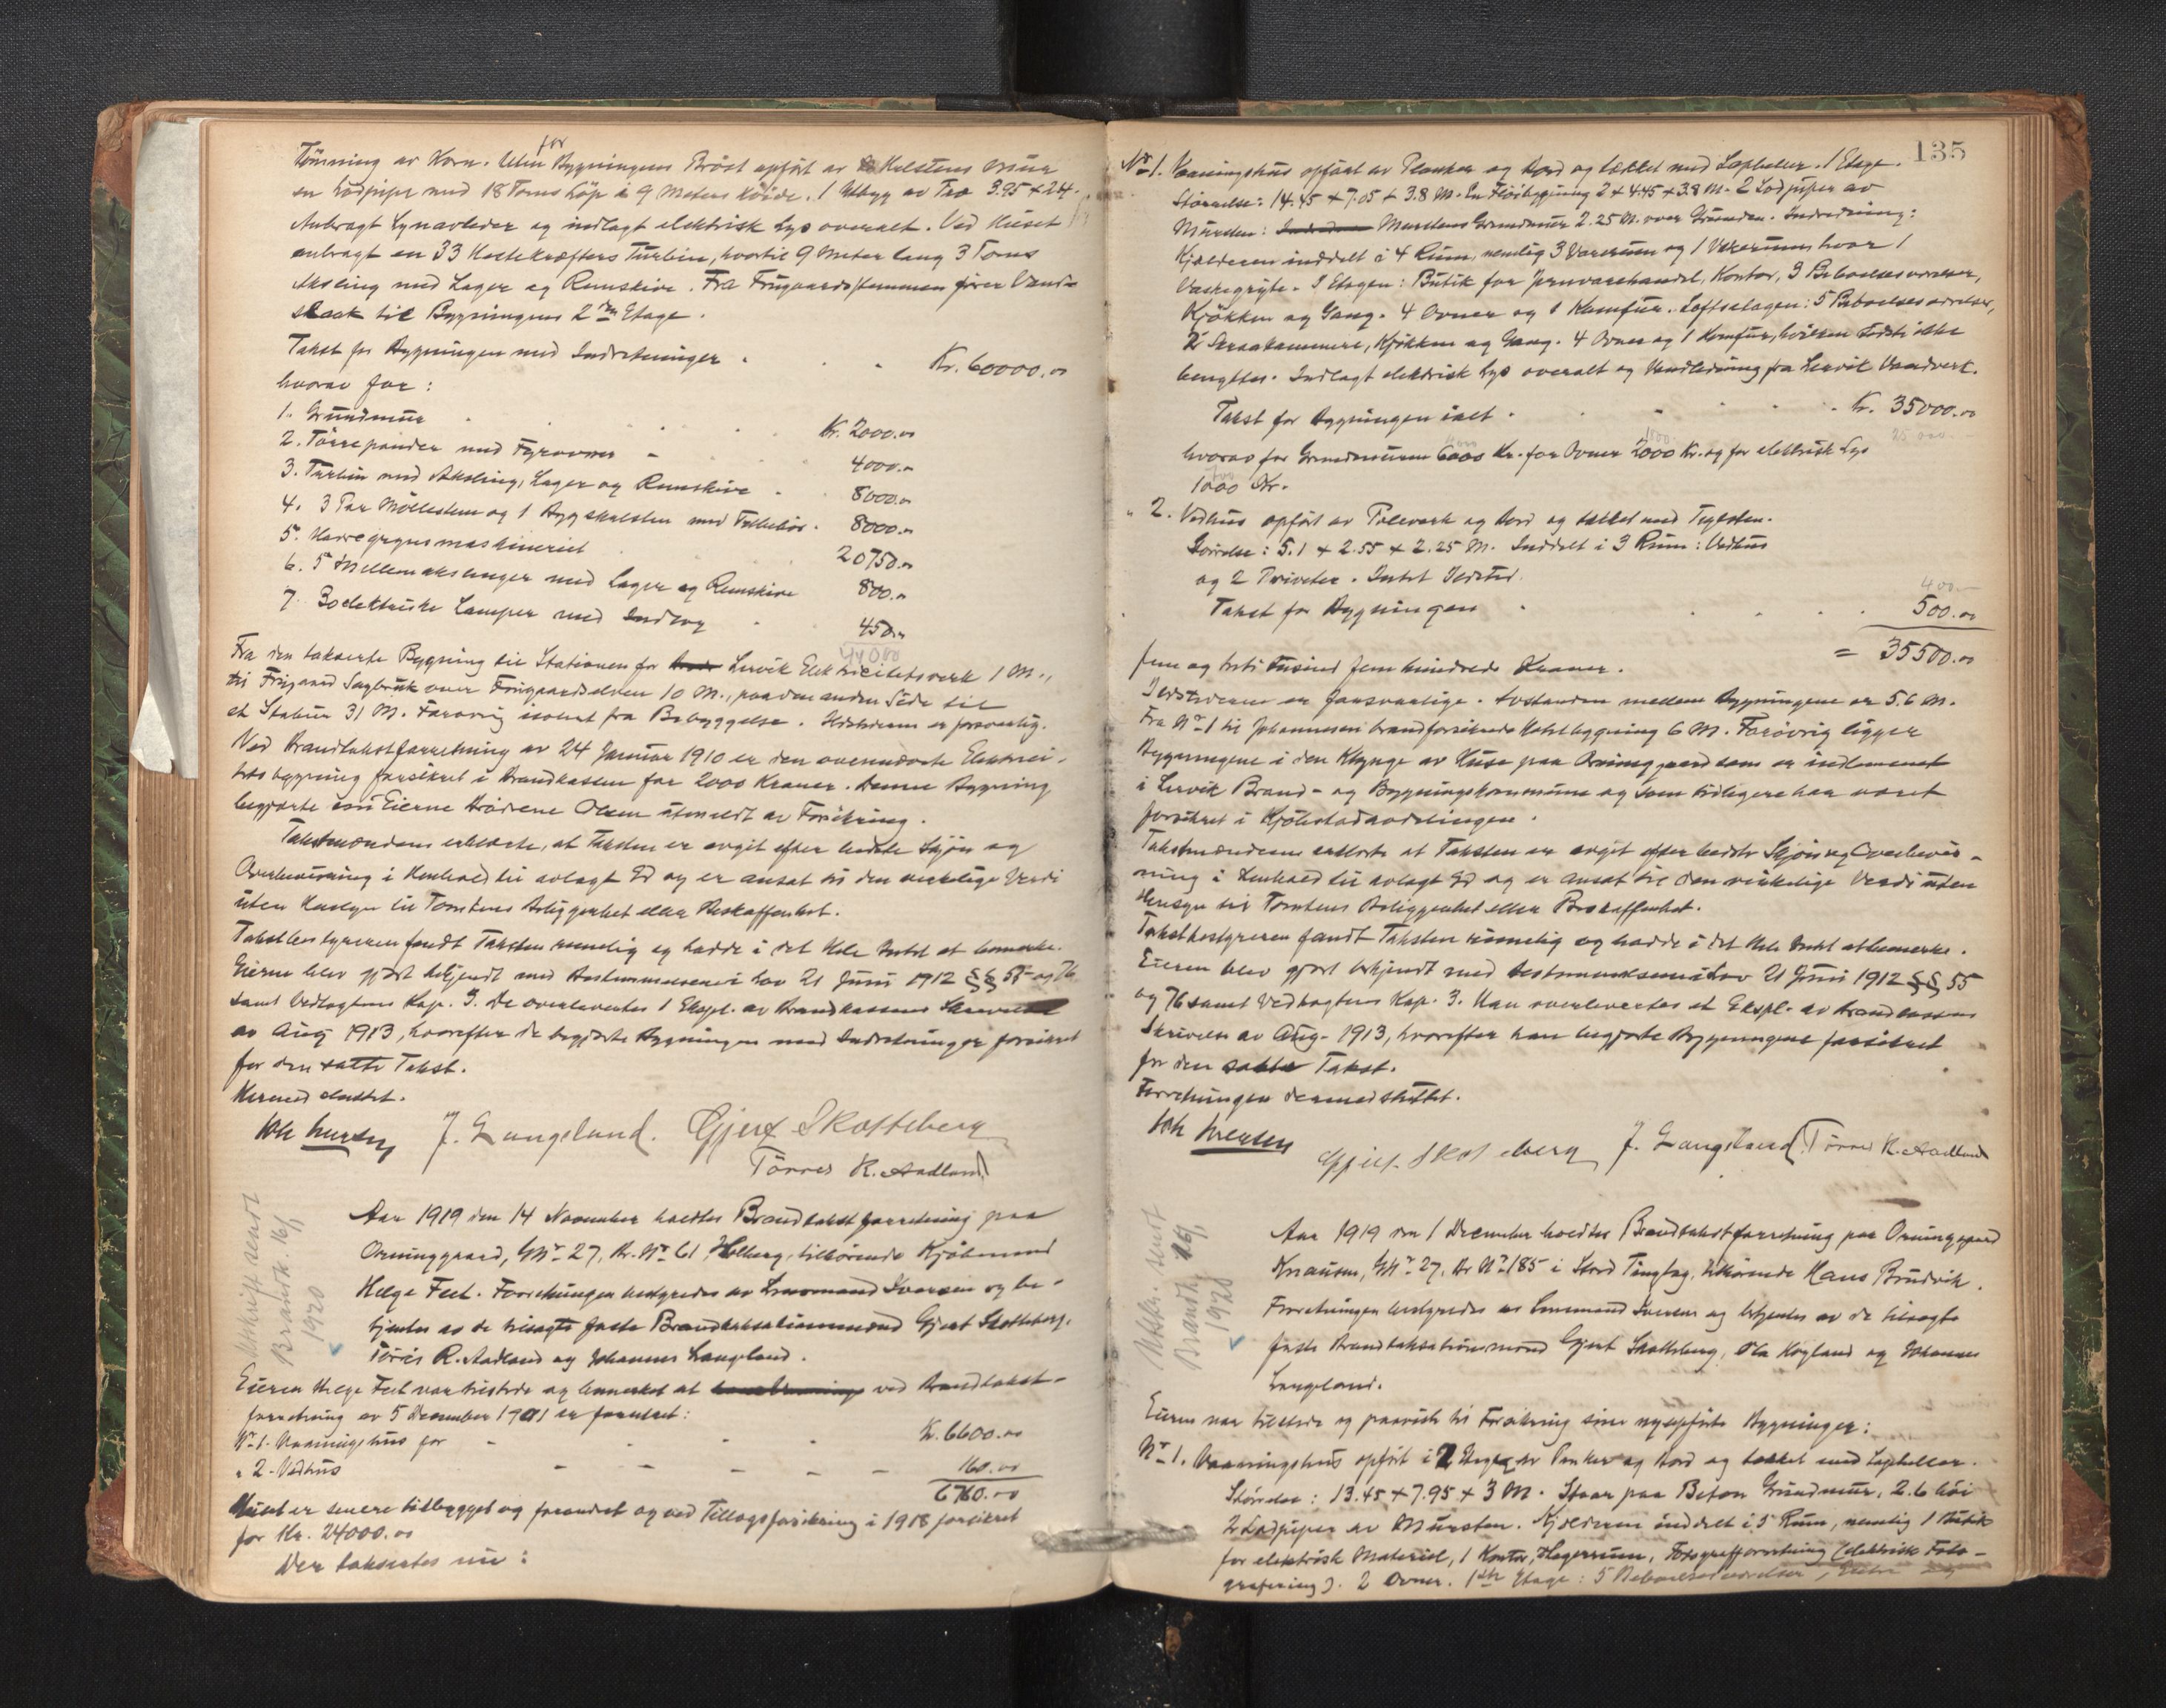 Tömning av Korn. Uten for Bygningens Bröst opfört av Helstens Mur
en Lodpipe med 18 Toms Löp i 9 Meters Höide. 1 Utbyg av Træ 3.95 + 2.4.
Anbragt Lynavleder og indlagt elektrisk Lys overalt. Ved Huset
anbragt en 33 Hestekræfters Turbin, hvortil 9 Meter lang 3 Toms
Aksling med Lager og Remskive. Fra Frugaardsdammen fører Vand-
slaok til Bygningens 2den Etage.
Takst for Bygningen med Indretninger . . . Kr. 60000.00
hvorav for:
1. Grundmur . . . Kr. 2000.00
2. Törrepander med Fyrovner - 4000.00
3. Turbin med Aksling, Lager og Remskive . 8000.00
4. 3 Par Möllesten og 1 Bygskalsten med Tilbehör . 8000.00
5. Havregrynsmaskineriet 20750.00
6. 5 Mellemakslinger med Lager og Remskive 800.00
7. 30 elektriske Lamper med Indlæg . 450.00
44000
Fra den takserte Bygning til Stationen for Lervik Elektricitetsverk 1 M.,
til Frugaard Sagbruk over Frugaardselven 10 M., paa den anden Side til
et Stabur 31 M. Forøvrig isolert fra Bebyggelse. Ildstederne er forsvarlig.
Ved Brandtakstforretning av 24 Januar 1910 er den ovennævnte Elektrici-
tetsbygning forsikret i Brandkassen for 2000 Kroner. Denne Bygning
begjærte nu Eierne Brödrene Olsen utmeldt av Forsikring.
Takstmændene erklærte, at Taksten er avgit efter bedste Skjön og
Overbevisning i Henhold til avlagt Ed og er ansat til den virkelige Verdi
uten Hensyn til Tomtens Beliggenhet eller Beskaffenhet.
Takstbestyreren fandt Taksten rimelig og hadde i det Hele Intet at bemerke.
Eierne blev gjort bekjendt med Bestemmelserne i Lov 21 Juni 1912 §§ 55 og 76
samt Vedtægtens Kap. 3. De overlevertes 1 Expl. av Brandkassens Skrivelse
av Aug 1913, hvorefter de begjærte Bygningen med Indretninger forsikret
for den satte Takst.
Hermed sluttet.
Joh Iversen J. Langeland. Gjert Skotteberg
Törres K. Aadland
Utskrift sendt
Brandk. 16/1
1920
Aar 1919 den 14 November holdtes Brandtakstforretning paa
Orninggaard, GNr. 27, Br. Nr 61 Holberg, tilhörende Kjöbmand
Helge Feet. Forretningen bestyredes av Lensmand Iversen og be-
tjentes av de tilsagte faste Brandtaksationsmænd Gjert Skotteberg,
Törris R. Aadland og Johannes Langeland.
Eieren Helge Feet var tilstede og bemerket at ved Brandtakst-
forretning av 5 December 1901 er forsikret:
Nr 1. Vaaningshus for - - - Kr. 6600.00
" 2. Vedhus - - - 160.00
6760.00
Huset er senere tilbygget og forandret og ved Tillægsforsikring i 1918 forsikret
for Kr. 24000.00
Der takseres nu:
135
Nr 1. Vaaningshus opført av Planker og Bord og tækket med Laphelter. 1 Etage.
Størrelse: 14.45 + 7.05 + 3.8 M. En Flöibygning 2 + 4.45 + 3.8 M. 2 Lodpiper av
Mursten: Murstens Grundmur 2.25 M. over Grunden. Indredning:
Kjælderen inddelt i 4 Rum, nemlig 3 Varerum og 1 Vaskerum, hvor 1
Vaskegryte. I Etagen: Butik for Jernvarehandel, Kontor, 3 Beboelsesværelser,
Kjökken og Gang. 4 Ovner og 1 Komfur. Loftsetagen: 5 Beboelsesværelser,
2 Skraakammere, Kjökken og Gang. 4 Ovner og 1 Komfur, hvilken sidste ikke
benyttes. Indlagt elektrisk Lys overalt og Vandledning fra Lervik Vandverk.
Takst for Bygningen ialt . . . Kr. 35000.00
25 000.
hvorav for Grundmuren 6000 Kr. for Ovner 2000 Kr. og for elektrisk Lys
1000 Kr.
" 2. Vedhus opfört av Stolverk og Bord og tækket med Teglsten.
Størrelse: 5.1 + 2.55 + 2.25 M. Inddelt i 3 Rum: Vedhus
og 2 Priveter. Intet Ildsted.
400.-
Takst for Bygningen . . . 500.00
= 35500.00
fem og treti tusind fem hundrede Kroner.
Ildstederne er forsvarlige. Avstanden mellem Bygningene er 5.6 M.
Fra Nr 1 til Johannesens brandforsikrede Hotelbygning 6 M. Forövrig ligger
Bygningene i den Klynge av Huse paa Orninggaard som er indlemmet
i Lervik Brand- og Bygningskommune og som tidligere har været
forsikret i Kjöbstadavdelingen.
Takstmændene erklærte at Taksten er avgit efter bedste Skjön og Overbevis-
ning i Henhold til avlagt Ed og er ansat til den virkelige Verdi uten
Hensyn til Tomtens Beliggenhet eller Beskaffenhet.
Takstbestyreren fandt Taksten rimelig og hadde i det Hele Intet at bemerke.
Eieren blev gjort bekjendt med Bestemmelsene i Lov 21 Juni 1912 §§ 55
og 76 samt Vedtægtens Kap. 3. Han overlevertes et Expl. av Brandkassens
Skrivelse av Aug. 1913, hvorefter han begjærte Bygningene forsikret
for den satte Takst.
Forretningen dermed sluttet.
Joh Iversen Gjert Skotteberg J. Langeland. Törres K. Aadland
Utskr. sendt
Brandk. 16/1
1920
Aar 1919 den 1 December holdtes Brandtakstforretning paa Orninggaard
Knausen, GNr. 27, Br Nr 185 i Stord Tinglag, tilhörende Hans Brudvik.
Forretningen bestyredes av Lensmand Iversen og betjentes av de tilsagte
faste Brandtaksationsmænd Gjert Skotteberg, Ola Hogland og Johannes
Langeland.
Eieren var tilstede og paaviste til Forsikring sine nyopførte Bygninger:
Nr 1. Vaaningshus opfört i 2 Etager av Planker og Bord og tækket med Laphellar.
Störrelse: 13.45 + 7.95 + 3 M. Staar paa Beton Grundmur, 2.6 höi
2 Lodpiper av Mursten. Kjælderen inddelt i 5 Rum, nemlig 1 Butik
for elektrisk Materiel, 1 Kontor, Lagerrum, Fotografforretning (elektrisk Foto-
grafering). 2 Ovner. 1ste Etage: 5 Beboelsesværelser,